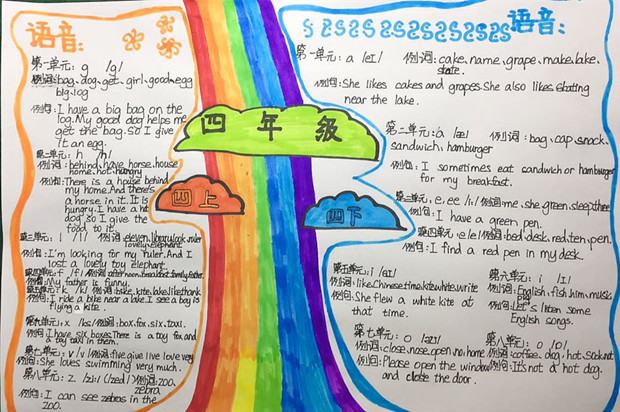 语音:
第一单元: g /g/
例词: bag、dog、get、girl、good、egg
big、log
例句: I have a big bag on the
log. My good dog helps me
get the bag. So I give
it an egg.
第二单元: h /h/
例词: behind、have、horse、house
home、hot、hungry
例句: There is a house behind
my home. And there's
a horse in it. It is
hungry. I have a hot
dog, so I give the
food to it.
第三单元: l /l/ 例词: eleven、library、look、ruler
lovely、elephant
例句: I'm looking for my ruler. And I
lost a lovely toy elephant.
第四单元: f /f/ 例词: afternoon、breakfast、family、father
例句: My father is funny.
第五单元: k /k/ 例词: bike、kite、lake、like、thank
例句: I ride a bike near a lake. I see a boy is
flying a kite.
第六单元: x /ks/ 例词: box、fox、six、taxi.
例句: I have six boxes. There is a toy fox and
a toy taxi in them.
第七单元: v /v/ 例词: five give live love very
例句: She loves swimming very much.
第八单元: z /z/ (/zed/) 例词: zoo、
zebra
例句: I can see zebras in the
zoo.
四年级
四上
四下
语音:
第一单元: a /eɪ/ 例词: cake、name、grape、make、lake、
skate.
例句: She likes cakes and grapes. She also likes skating
near the lake.
第二单元: a /æ/ 例词: bag、cap、snack、
sandwich、hamburger
例句: I sometimes eat sandwich or hamburger
for my breakfast.
第三单元: e, ee /i:/ 例词: me、she、green、sleep、three
例句: I have a green pen.
第四单元: e /e/ 例词: bed、desk、red、ten、pen.
例句: I find a red pen in my desk.
第五单元: i /aɪ/
例词: like、Chinese、time、kite、white、write
例句: She flew a white kite at
that time.
第六单元: i /ɪ/
例词: English、fish、him、music
pig
例句: Let's listen some
English songs.
第七单元: o /əʊ/
例词: close、nose、open、no、home
例句: Please open the window
and close the door.
第八单元: o /ɒ/
例词: coffee、dog、hot、sock、not
例句: It's not a hot dog.